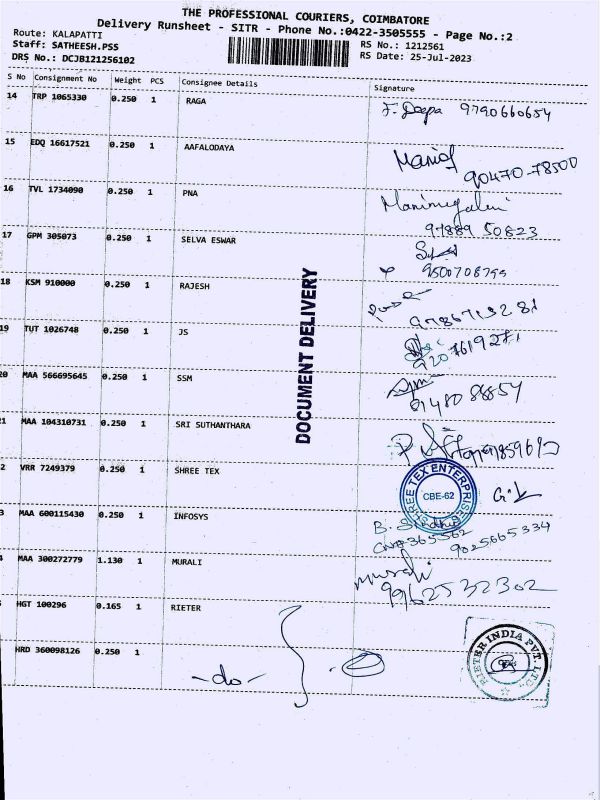 THE PROFESSIONAL COURIERS, COIMBATORE
Delivery Runsheet - SITR - Phone No.:0422-3505555 - Page No.:2
Route: KALAPATTI
Staff: SATHEESH.PSS
DRS No.: DCJB121256102
RS No.: 1212561
RS Date: 25-Jul-2023
S No Consignment No Weight PCS Consignee Details Signature
14 TRP 1065330 0.250 1 RAGA F. Deepa 9790660654
15 EDQ 16617521 0.250 1 AAFALODAYA
90470-78500
16 TVL 1734090 0.250 1 PNA Manimegalai
50823
17 GPM 305073 0.250 1 SELVA ESWAR
9500708799
18 KSM 910000 0.250 1 RAJESH
19 TUT 1026748 0.250 1 JS
20 MAA 566695645 0.250 1 SSM
21 MAA 104310731 0.250 1 SRI SUTHANTHARA
2 VRR 7249379 0.250 1 SHREE TEX
SHREE TEX ENTERPRISE
CBE-62
3 MAA 600115430 0.250 1 INFOSYS B. Sindhu
365562
9025665334
4 MAA 300272779 1.130 1 MURALI Murali
9962532302
HGT 100296 0.165 1 RIETER
HRD 360098126 0.250 1
-do-
RIETER INDIA PVT. LTD.
DOCUMENT DELIVERY